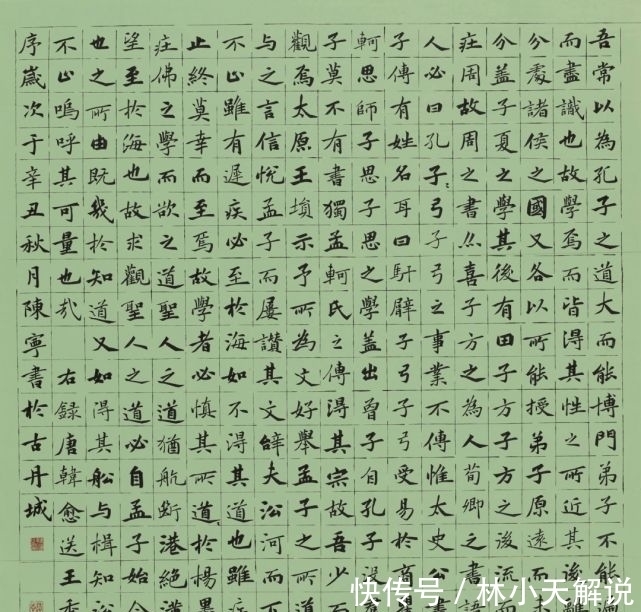 吾常以為孔子之道大而能博門弟子不能
而盡識也故學焉而皆得其性之所近其後
分處諸侯之國又各以所能授弟子原遠而
分蓋子夏之學其後有田子方子方之後流而
莊周故周之書喜子方之為人荀卿之書語
人必曰孔子弓子弓之事業不傳惟太史公書
子傳有姓名耳曰馯臂子弓子弓受易於商
軻思師子思子思之學蓋出曾子自孔子
子莫不有書獨孟軻氏之傳得其宗故吾少
觀焉太原王塤示予所為文好舉孟子之所道
与之言信悅孟子而屢讚其文辭夫沿河而下
不止雖有遲疾必至於海如不得其道也雖疾
止終莫幸而至焉故學者必慎其所道於楊墨
莊佛之學而欲之道聖人之道猶航斷港絕潢
望至於海也故求觀聖人之道必自孟子始今
也之所由既幾於知道又如得其船与楫知沿
不止嗚呼其可量也哉 右錄唐韓愈送王秀
序歲次于辛丑秋月陳寧書於古丹城
快传号 / 林小天解说